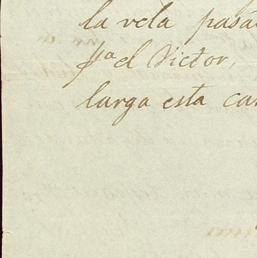 la vela pasa
pª el Victor,
larga esta ca